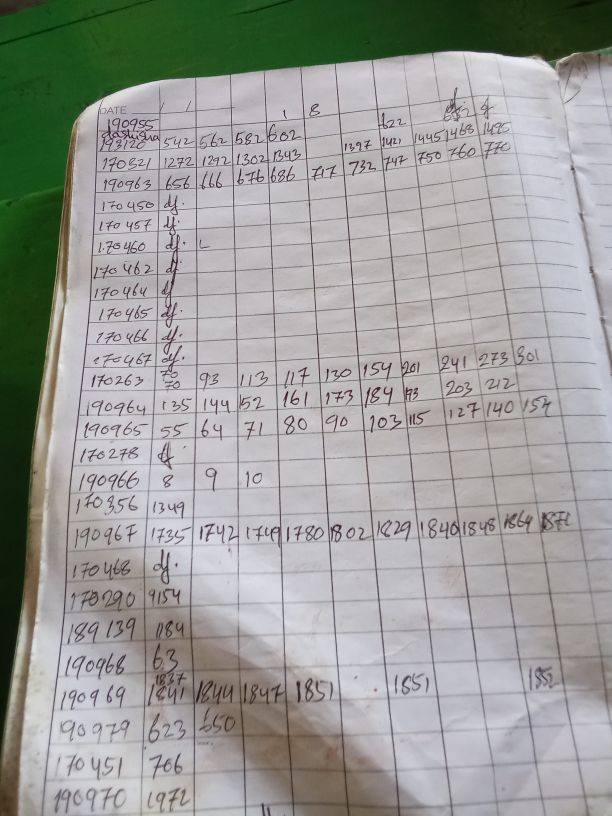 DATE / / 1 8
190955 622
193120 542 562 582 602 1397 1421 1445 1468 1495
170321 1272 1292 1302 1343
190963 656 666 676 686 717 732 747 750 760 770
170450 df.
170457 df.
170460 df.
170462 df
170464 df
170465 df.
170466 df.
170467 df.
70
170263 70 93 113 117 130 154 201 241 273 301
190964 135 144 152 161 173 184 193 203 212
190965 55 64 71 80 90 103 115 127 140 154
170278 df
190966 8 9 10
170356 1349
190967 1735 1742 1749 1780 1802 1829 1840 1848 1864 1872
170468 df.
170290 9154
189139 1184
190968 63
1837
190969 1841 1844 1847 1851 1851 1852
90979 623 650
170451 706
190970 1972